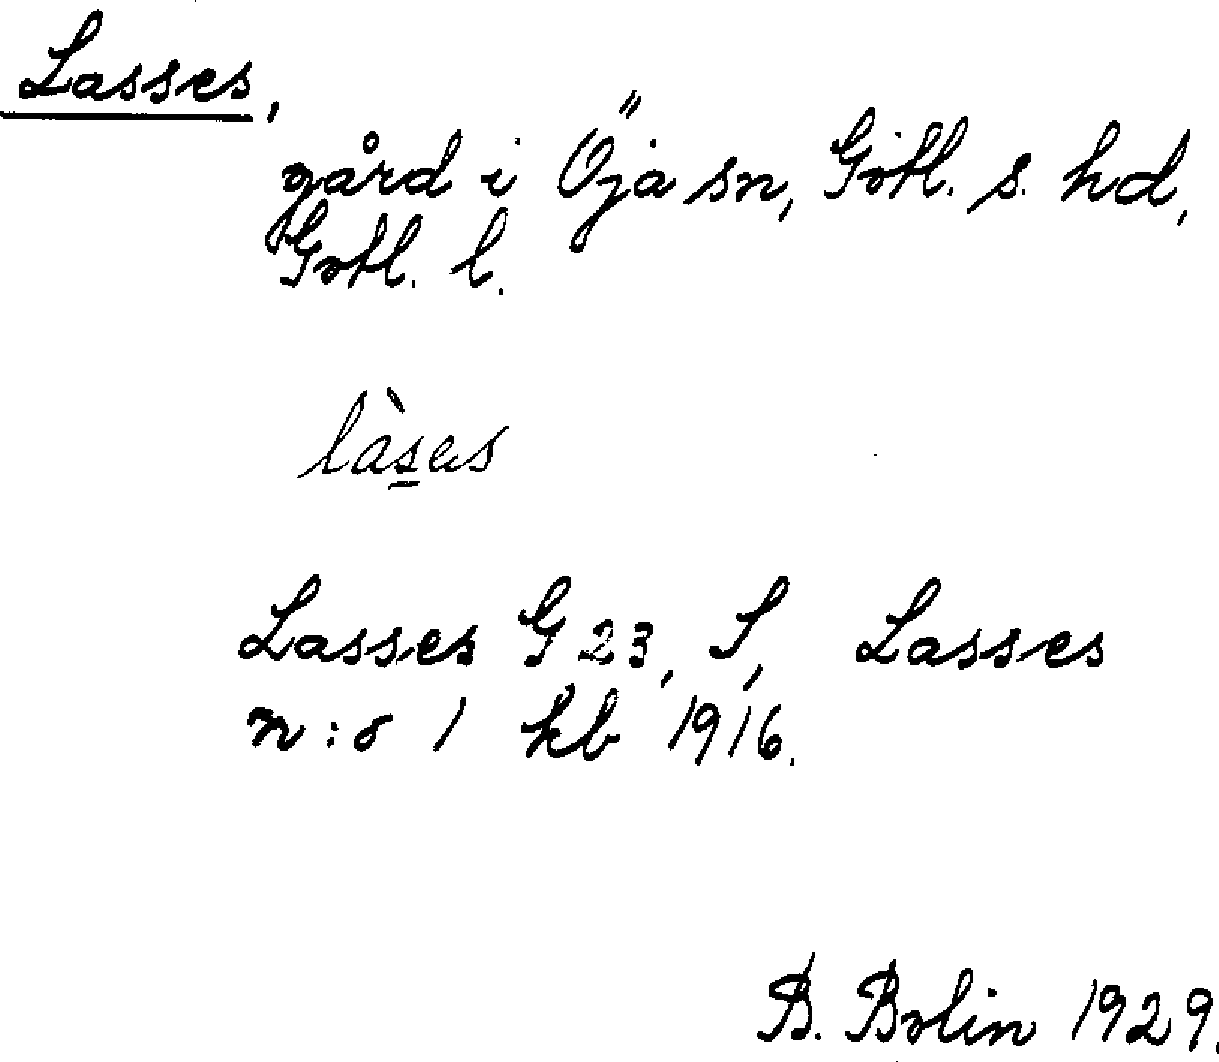 Lasses,
gård i Öja sn, Gotl. s. hd,
Gotl. l.
làs̲es
Lasses G 23, S, Lasses
n:o 1 kb 1916.
B. Bolin 1929.